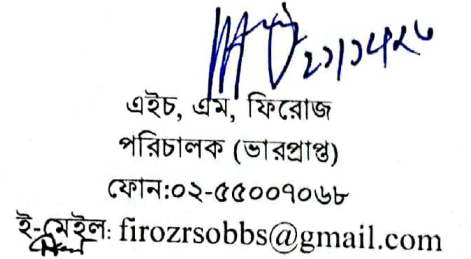 এইচ, এম, ফিরোজ
পরিচালক (ভারপ্রাপ্ত)
ফোন:০২-৫৫০০৭০৬৮
ই-মেইল: firozrsobbs@gmail.com